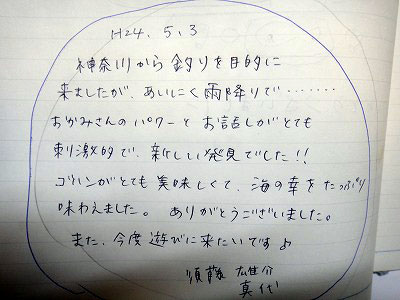 H24.5.3
神奈川から釣りを目的に
来ましたが、あいにく雨降りで・・・・・・・
おかみさんのパワーとお話しがとても
刺激的で、新しい発見でした!!
ゴハンがとても美味しくて、海の幸をたっぷり
味わえました。ありがとうございました。
また、今度遊びに来たいです♪
須藤 介
真代